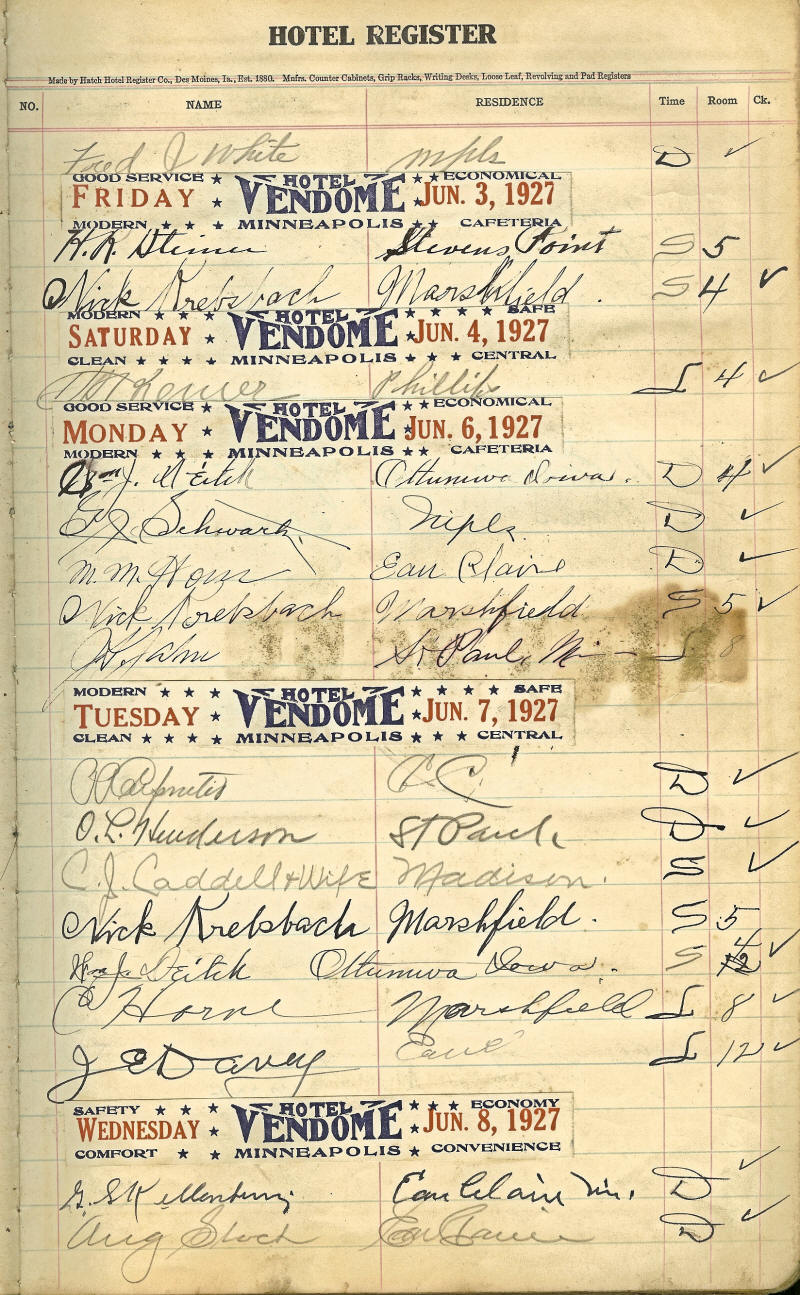 HOTEL REGISTER
Made by Hatch Hotel Register Co., Des Moines, Ia., Est. 1880. Mnfrs. Counter Cabinets, Grip Racks, Writing Desks, Loose Leaf, Revolving and Pad Registers
NO. NAME RESIDENCE Time Room Ck.
Fred J White mpls D ✓
GOOD SERVICE ★ HOTEL ★ ★ ECONOMICAL
FRIDAY ★ VENDOME JUN. 3, 1927
MODERN ★ ★ ★ MINNEAPOLIS ★ ★ CAFETERIA
H. K. Steiner Stevens Point S 5
Nick Krebsbach Marshfield. S 4 ✓
MODERN ★ ★ ★ HOTEL ★ ★ ★ ★ SAFE
SATURDAY ★ VENDOME ★ JUN. 4, 1927
CLEAN ★ ★ ★ ★ MINNEAPOLIS ★ ★ ★ CENTRAL
Phillips L 4 ✓
GOOD SERVICE ★ HOTEL ★ ★ ECONOMICAL
MONDAY ★ VENDOME JUN. 6, 1927
MODERN ★ ★ ★ MINNEAPOLIS ★ ★ CAFETERIA
Wm J. Deitch Ottumwa Iowa. D 4 ✓
Schwartz Mpls. D ✓
M. M. Horn Eau Claire D ✓
Nick Krebsbach Marshfield S 5 ✓
St Paul, Minn L 8
MODERN ★ ★ ★ HOTEL ★ ★ ★ ★ SAFE
TUESDAY ★ VENDOME ★ JUN. 7, 1927
CLEAN ★ ★ ★ ★ MINNEAPOLIS ★ ★ ★ CENTRAL
D ✓
O. L. Henderson St Paul D ✓
C. J. Caddell & Wife Madison. S ✓
Nick Krebsbach Marshfield. S 5
Wm J. Deitch Ottumwa Iowa. S 4 12 ✓
C Horne Marshfield L 8 ✓
J E Davey Eau C L 12 ✓
SAFETY ★ ★ ★ HOTEL ★ ★ ★ ECONOMY
WEDNESDAY ★ VENDOME ★ JUN. 8, 1927
COMFORT ★ ★ MINNEAPOLIS ★ CONVENIENCE
G. S. Kellenberry Eau Claire Wis. D ✓
Aug Stoch Eau Claire D ✓